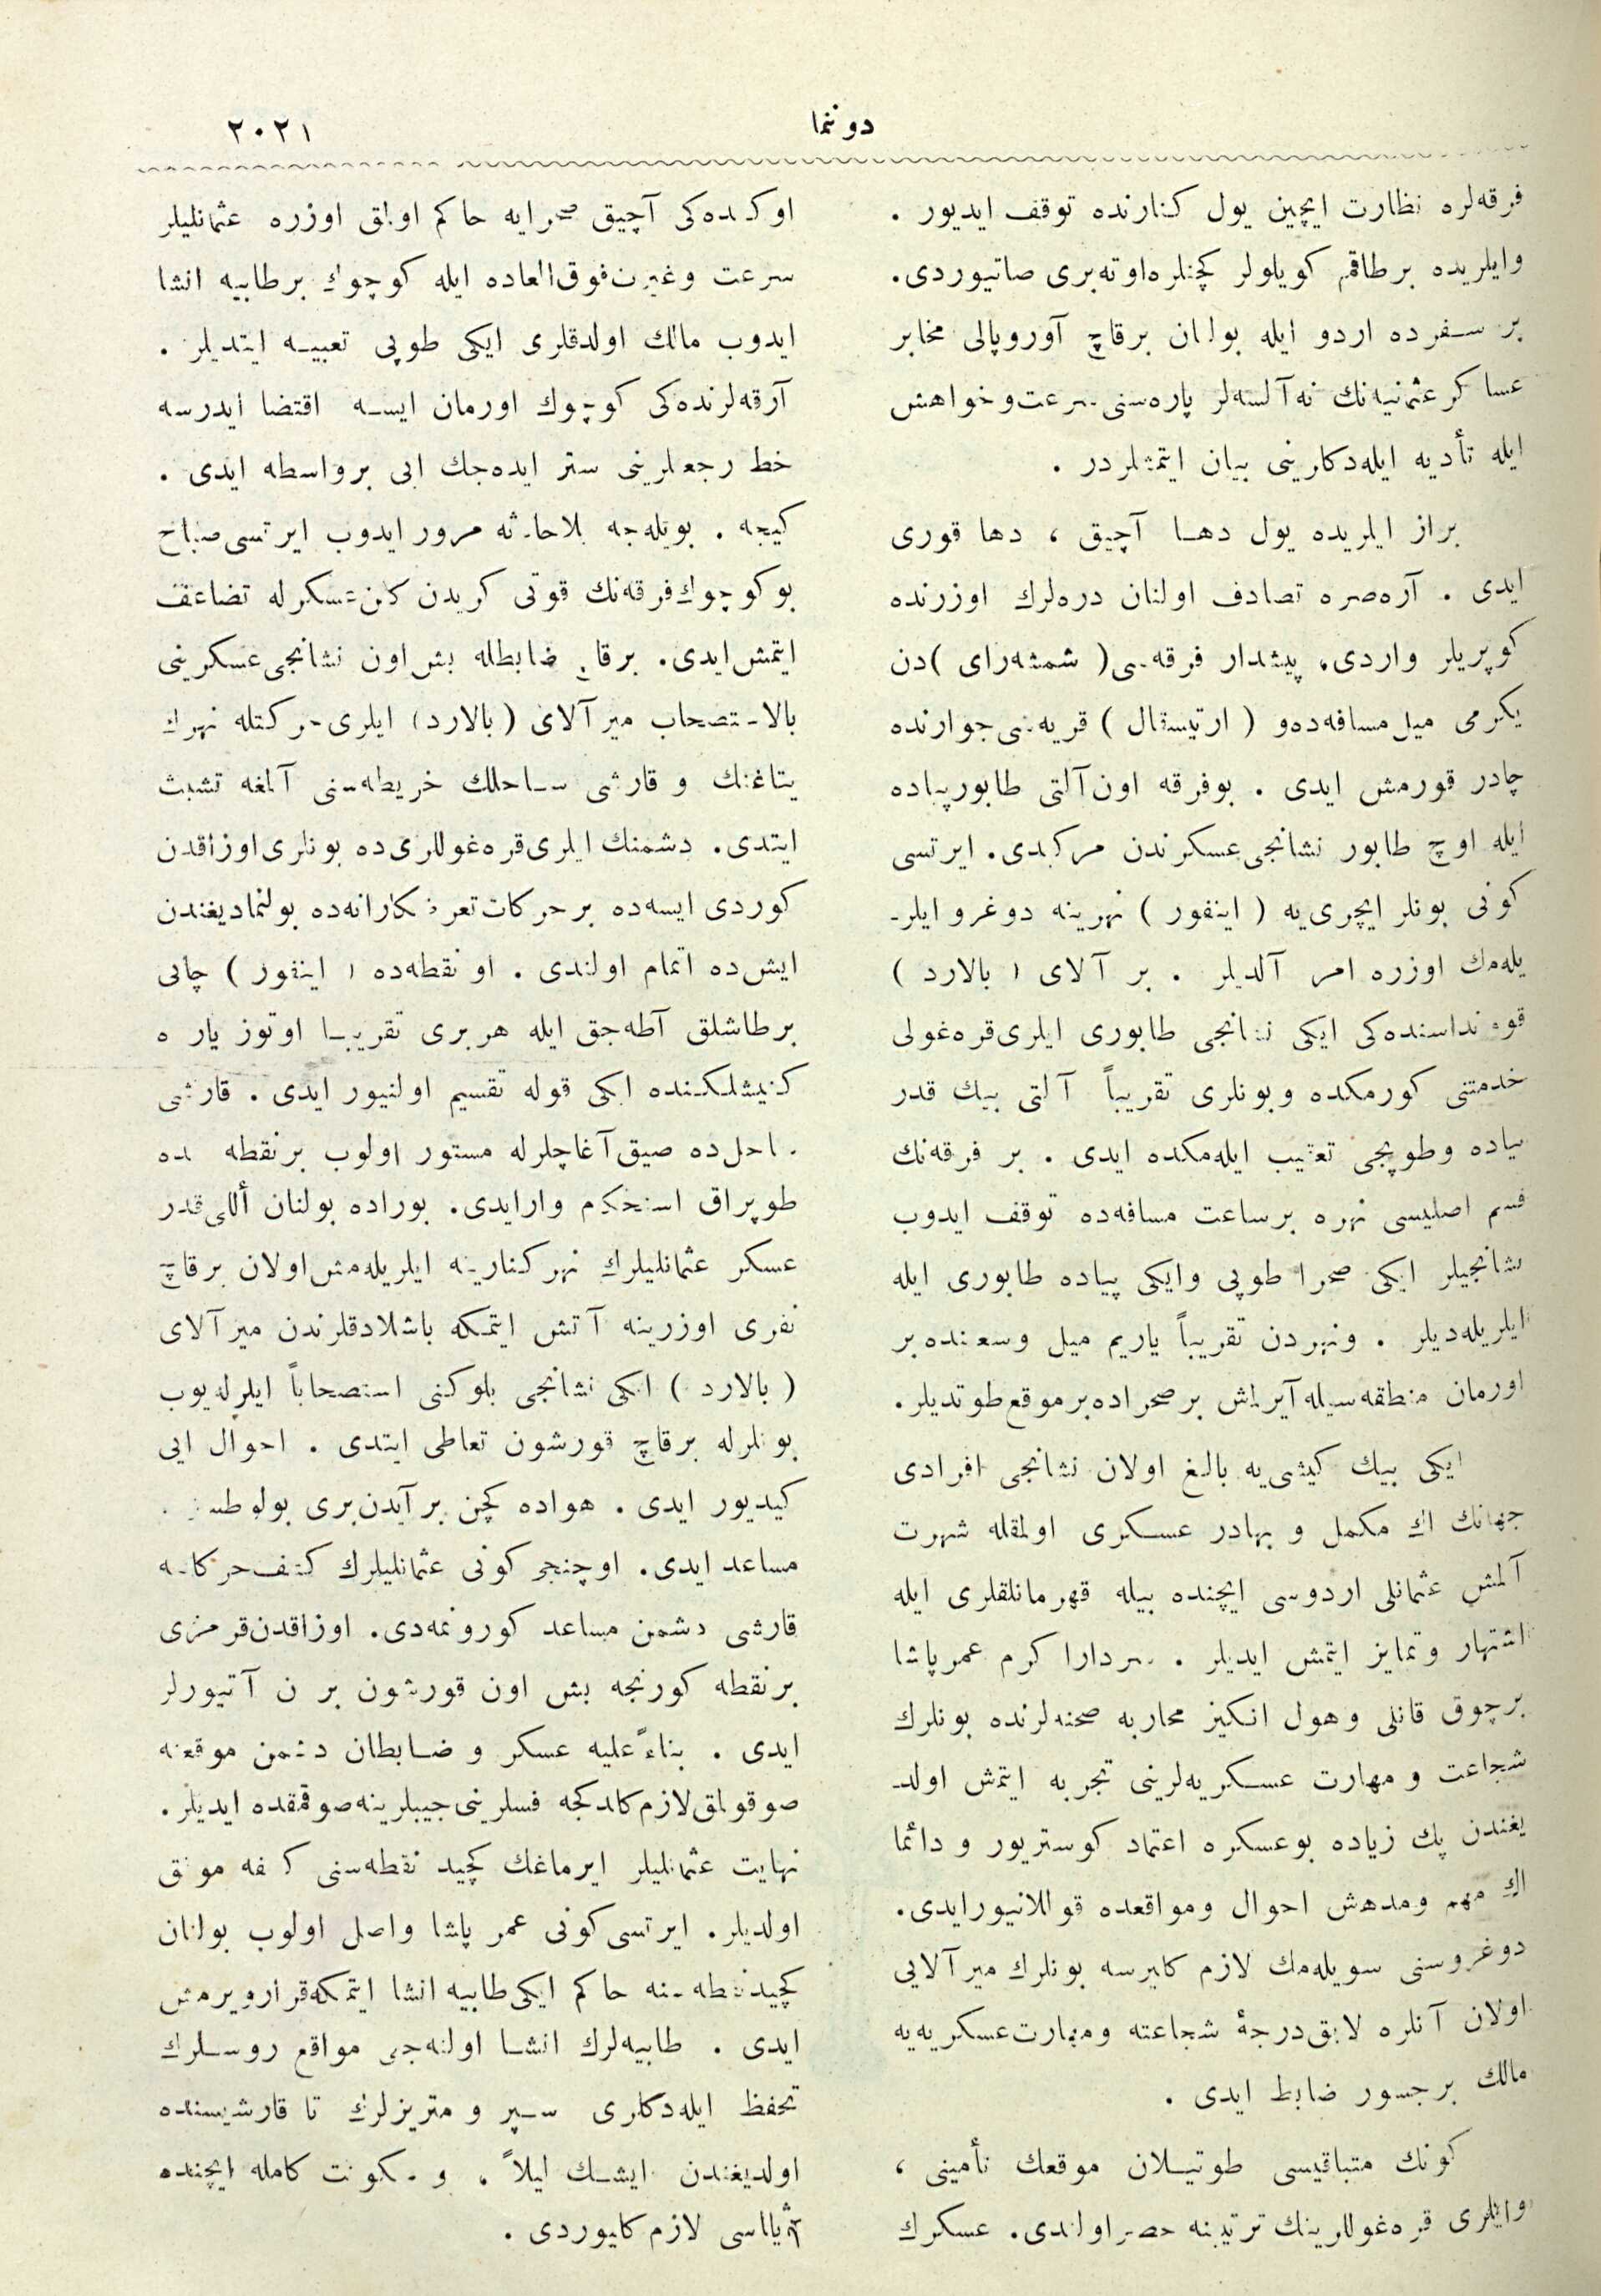 دونما
٢٠٢١
فرقه‌لره نظارت ایچین یول کنارنده توقف ایدیور .
وایلریده برطاقم کویلولر کچنلره‌اوته‌بری صاتیوردی.
بر سفرده اردو ایله بولنان برقاچ آوروپالی مخابر
عساکر عثمانیه‌نك نه‌آلسه‌لر پاره‌سنی سرعت‌وخواهش
ایله تأدیه ایله‌دکلرینی بیان ایتمشلردر .
براز ایلریده یول دها آچیق ، دها قوری
ایدی . آره‌صره تصادف اولنان دره‌لرك اوزرنده
کوپریلر واردی، پیشدار فرقه‌سی( شمشه‌رای )دن
یکرمی میل مسافه‌ده‌و ( ارتیسقال ) قریه‌سی جوارنده
چادر قورمش ایدی . بوفرقه اون‌آلتی طابورپیاده
ایله اوچ طابور نشانجی عسکرندن مرکبدی. ایرتسی
کونی بونلر ایچری‌یه ( اینغور ) نهرینه دوغرو ایلر-
یله‌مك اوزره امر آلدیلر . بر آلای ( بالارد )
قومانداسنده‌کی ایکی نشانجی طابوری ایلری‌قره‌غولی
خدمتنی کورمکده وبونلری تقریباً آلتی بیك قدر
پیاده وطوپجی تعقیب ایله‌مکده ایدی . بر فرقه‌نك
قسم اصلیسی نهره برساعت مسافه‌ده توقف ایدوب
نشانجیلر ایکی صحرا طوپی وایکی پیاده طابوری ایله
ایلریله‌دیلر . ونهردن تقریباً یاریم میل وسعتنده‌بر
اورمان منطقه‌سیله‌آیرلمش برصحراده‌برموقع‌طوتدیلر.
ایکی بیك کیشی‌یه بالغ اولان نشانجی افرادی
جهانك اك مکمل و بهادر عسکری اولمقله شهرت
آلمش عثمانلی اردوسی ایچنده بیله قهرمانلقلری ایله
اشتهار وتمایز ایتمش ایدیلر . سردارا کرم عمرپاشا
برچوق قانلی وهول انکیز محاربه صحنه‌لرنده بونلرك
شجاعت و مهارت عسکریه‌لرینی تجربه ایتمش اولد-
یغندن پك زیاده بوعسکره اعتماد کوستریور و دائما
اك مهم ومدهش احوال ومواقعده قوللانیورایدی.
دوغروسنی سویله‌مك لازم کلیرسه بونلرك میرآلایی
اولان آنلره لایق‌درجهٔ شجاعته ومهارت‌عسکریه‌یه
مالك برجسور ضابط ایدی .
کونك متباقیسی طوتیلان موقعك تأمینی ،
وایلری قره‌غوللرینك ترتیبنه حصر اولندی. عسکرك
اوکنده‌کی آچیق صحرایه حاکم اولمق اوزره عثمانلیلر
سرعت وغیرت‌فوق‌العاده ایله کوچوك برطابیه انشا
ایدوب مالك اولدقلری ایکی طوپی تعبیه ایتدیلر .
آرقه‌لرنده‌کی کوچوك اورمان ایسه اقتضا ایدرسه
خط رجعلرینی ستر ایده‌جك ایی برواسطه ایدی .
کیجه . بویله‌جه بلاحادثه مرور ایدوب ایرتسی‌صباح
بوکوچوك‌فرقه‌نك قوتی کریدن کلن‌عسکرله تضاعف
ایتمش‌ایدی. برقاچ ضابطله بش‌اون نشانجی‌عسکرینی
بالاستصحاب میرآلای (بالارد) ایلری‌حرکتله نهرك
یتاغنك و قارشی ساحلك خریطه‌سنی آلمغه تشبث
ایتدی. دشمنك ایلری‌قره‌غوللری‌ده بونلری‌اوزاقدن
کوردی ایسه‌ده برحرکات‌تعرضکارانه‌ده بولنمادیغندن
ایش‌ده اتمام اولندی . اونقطه‌ده ( اینغور ) چایی
برطاشلق آطه‌جق ایله هربری تقریبا اوتوز یارده
کنیشلکنده ایکی قوله تقسیم اولنیور ایدی . قارشی
ساحل‌ده صیق‌آغاچلرله مستور اولوب برنقطه‌سنده
طوپراق استحکام وارایدی. بوراده بولنان أللی‌قدر
عسکر عثمانلیلرك نهر کنارینه ایلریله‌مش‌اولان برقاچ
نفری اوزرینه آتش ایتمکه باشلادقلرندن میرآلای
( بالارد ) ایکی نشانجی بلوکنی استصحاباً ایلرله‌یوب
بونلرله برقاچ قورشون تعاطی ایتدی . احوال ایی
کیدیور ایدی . هواده کچن برآیدن‌بری بولوطسز .
مساعد ایدی. اوچنجی کونی عثمانلیلرك کشف‌حرکاتنه
قارشی دشمن مساعد کورونمه‌دی. اوزاقدن‌قرمزی
برنقطه کورنجه بش اون قورشون بردن آتیورلر
ایدی . بناءً‌علیه عسکر و ضابطان دشمن موقعنه
صوقولمق‌لازم‌کلدکجه فسلرینی‌جیبلرینه‌صوقمقده ایدیلر.
نهایت عثمانلیلر ایرماغك کچید نقطه‌سنی کشفه موفق
اولدیلر. ایرتسی‌کونی عمر پاشا واصل اولوب بولنان
کچیدنقطه‌سنه حاکم ایکی‌طابیه انشا ایتمکه‌قرارویرمش
ایدی . طابیه‌لرك انشا اولنه‌جغی مواقع روسلرك
تحفظ ایله‌دکلری سپر و متریزلرك تا قارشیسنده
اولدیغندن ایشك لیلاً . و سکونت کامله ایچنده
یاپیلماسی لازم کلیوردی .